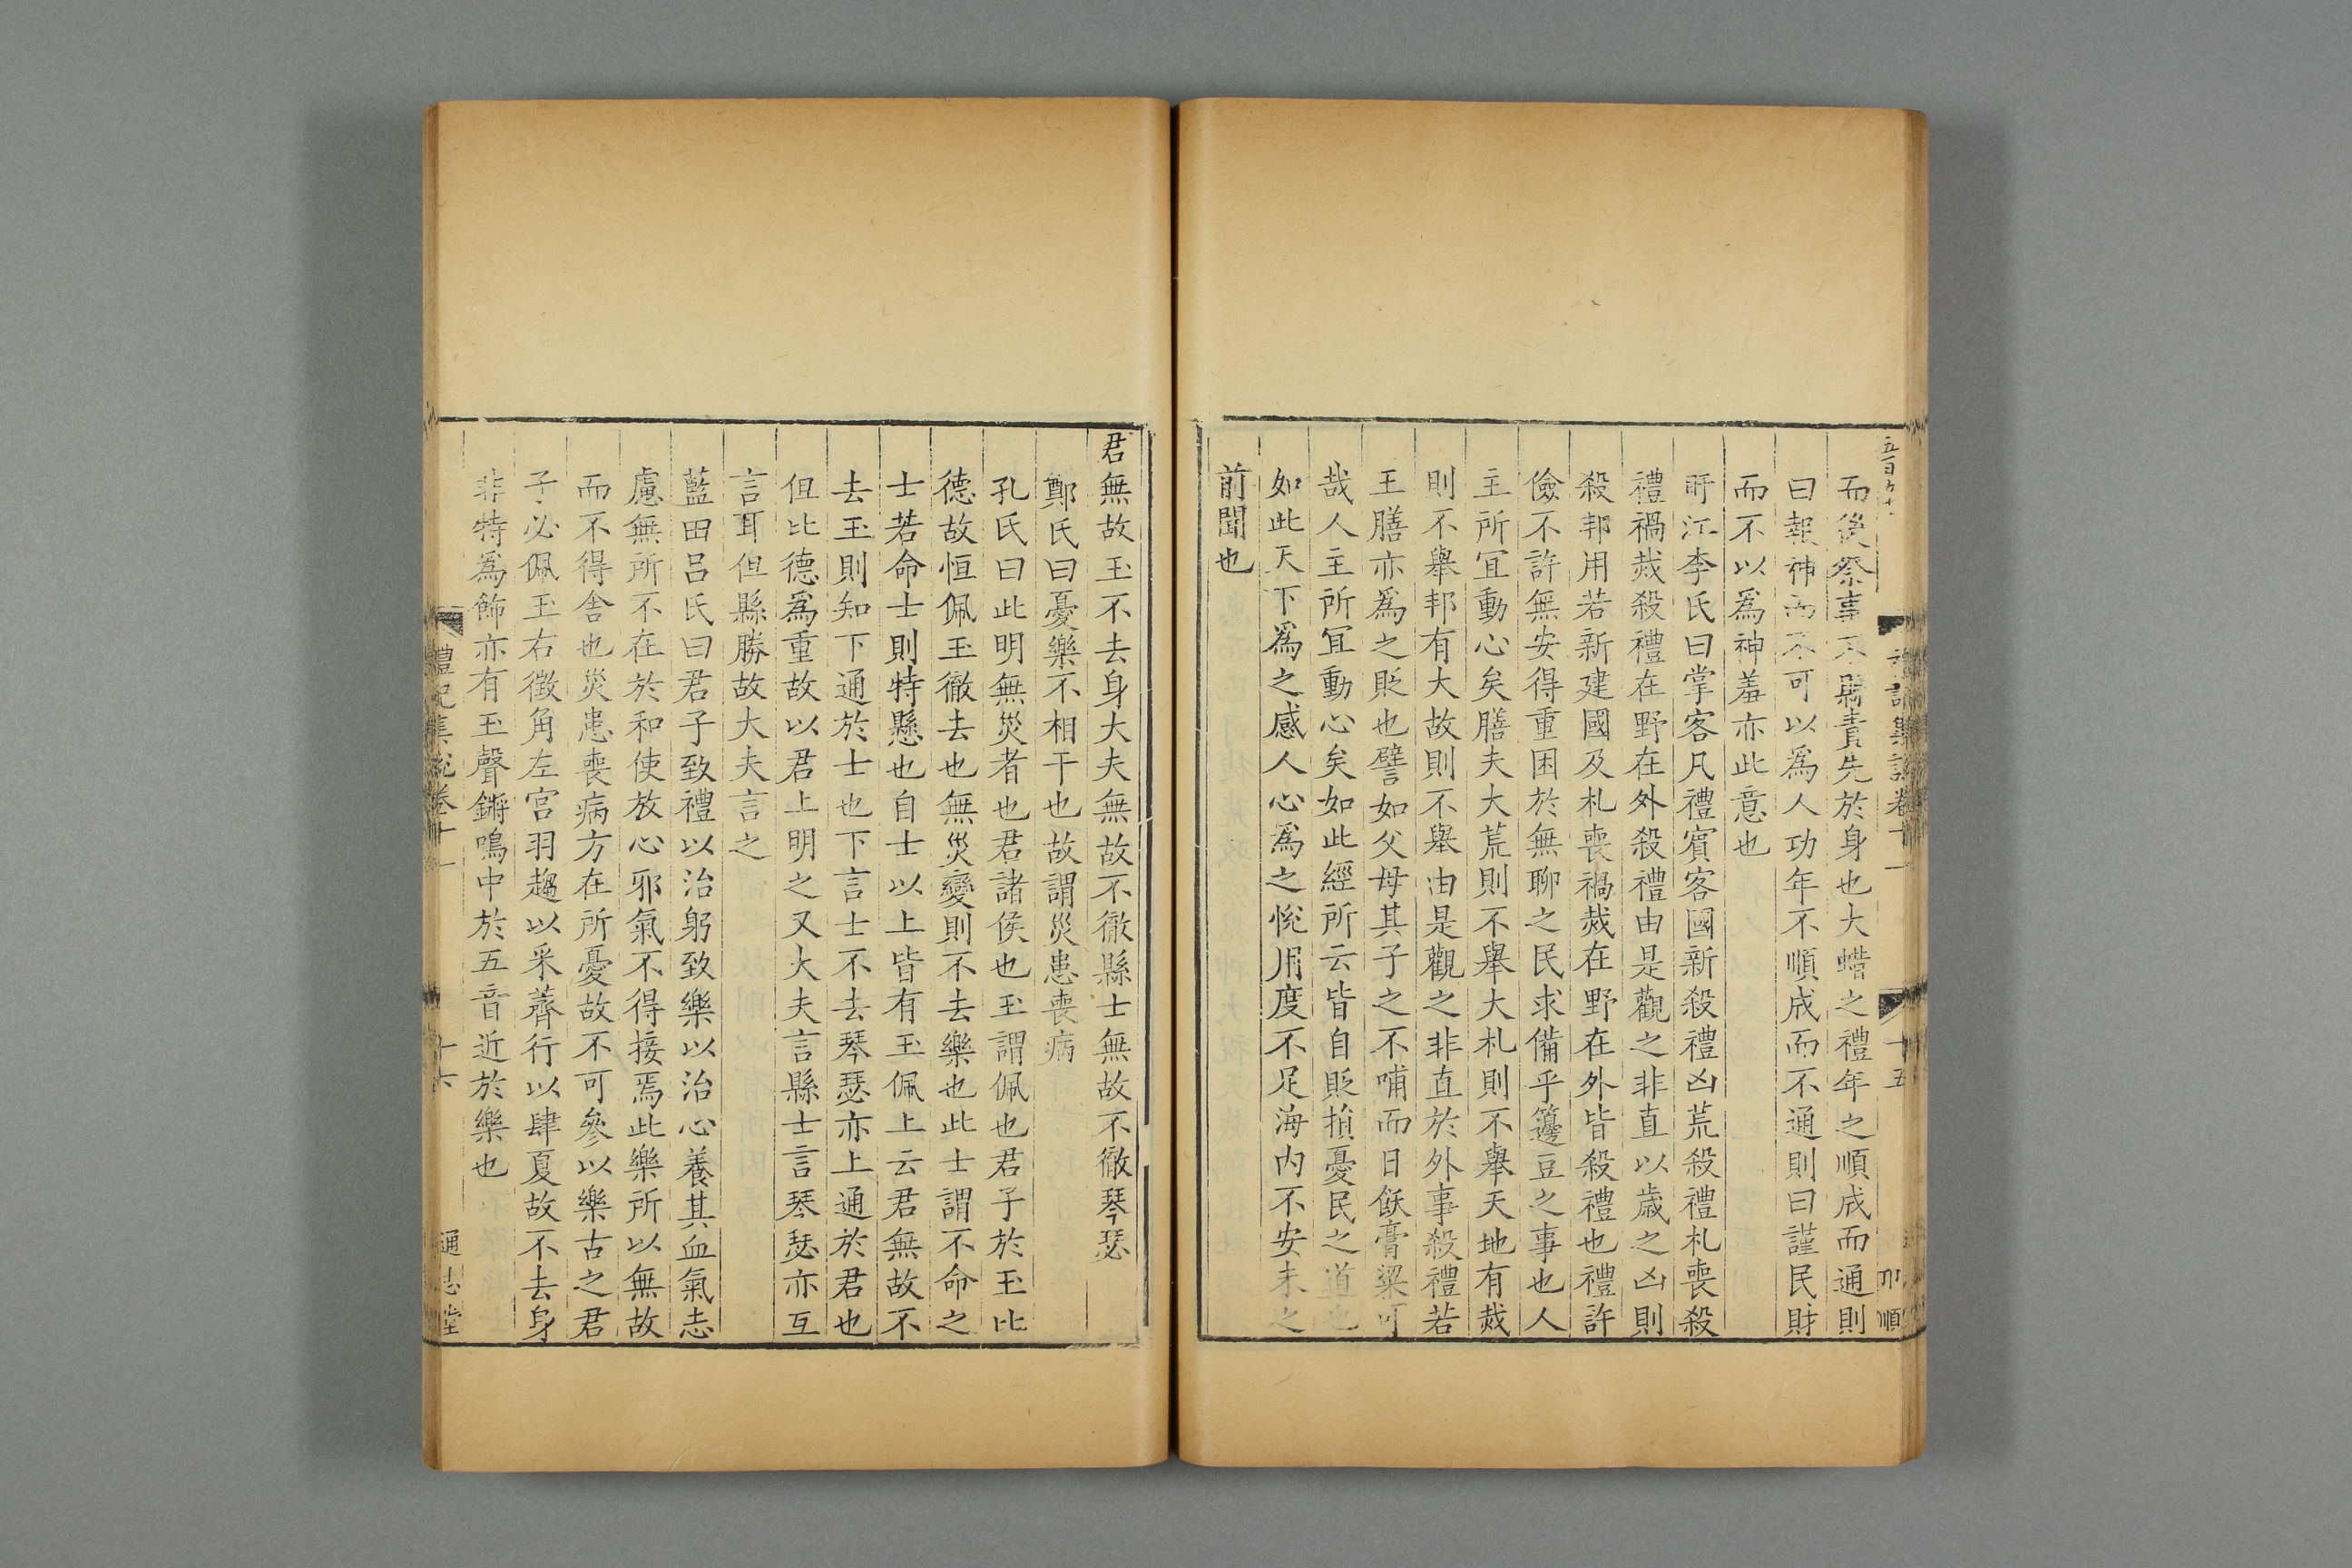 禮記集說卷十一 十五
而後祭事不縣責先於身也大蜡之禮年之順成而通則
曰報神而不可以為人功年不順成而不通則曰謹民財
而不以為神羞亦此意也
盱江李氏曰掌客凡禮賓客國新殺禮凶荒殺禮札喪殺
禮禍烖殺禮在野在外殺禮由是觀之非直以歲之凶則
殺邦用若新建國及札喪禍烖在野在外皆殺禮也禮許
儉不許無安得重困於無聊之民求備乎籩豆之事也人
主所宜動心矣膳夫大荒則不舉大札則不舉天地有烖
則不舉邦有大故則不舉由是觀之非直於外事殺禮若
王膳亦為之貶也譬如父母其子之不哺而日飫膏粱可
哉人主所宜動心矣如此經所云皆自貶損憂民之道也
如此天下為之感人心為之悅用度不足海內不安未之
前聞也
君無故玉不去身大夫無故不徹縣士無故不徹琴瑟
鄭氏曰憂樂不相干也故謂災患喪病
孔氏曰此明無災者也君諸侯也玉謂佩也君子於玉比
德故恒佩玉徹去也無災變則不去樂也此士謂不命之
士若命士則特懸也自士以上皆有玉佩上云君無故不
去玉則知下通於士也下言士不去琴瑟亦上通於君也
但比德為重故以君上明之又大夫言縣士言琴瑟亦互
言耳但縣勝故大夫言之
藍田呂氏曰君子致禮以治躬致樂以治心養其血氣志
慮無所不在於和使放心邪氣不得接焉此樂所以無故
而不得舍也災患喪病方在所憂故不可參以樂古之君
子必佩玉右徵角左宮羽趨以采薺行以肆夏故不去身
非特為飾亦有玉聲鏘鳴中於五音近於樂也
禮記集說卷十一 十六 通志堂